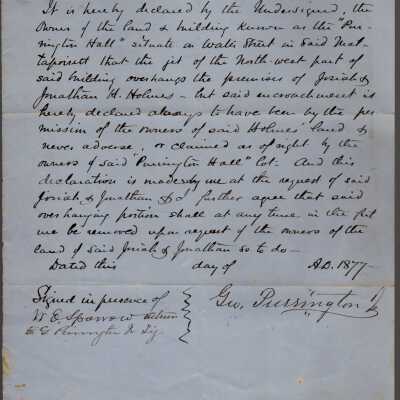 It is hereby declared by the Undersigned, the
owner of the land & building known as the "Pur-
rington Hall" situate on Water Street in said Mat-
tapoisett that the jet of the North-west part of
said building overhangs the premises of Josiah &
Jonathan H. Holmes - but said encroachment is
hereby declared always to have been by the per
mission of the owners of said Holmes' land &
never adverse, or claimed as of right by the
owners of said "Purrington Hall" lot. And this
declaration is made by me at the request of said
Josiah & Jonathan & I further agree that said
overhanging portion shall at any time in the fut
ure be removed upon request of the owners of the
land of said Josiah & Jonathan so to do -
Dated this day of A.D. 1877 -
Signed in presence of
W. E. Sparrow
Geo. Purrington Jr
to G Purrington Jr Sig.